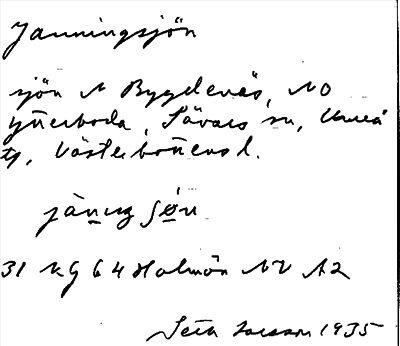 Janningsjön
sjön N Bygdeväs, NO
Ytterboda, Sävars sn, Umeå
tg, Västerbottens l.
jàning sjø̀n
31 Kg 64 Holmön NV A2
Seth Larsson 1935